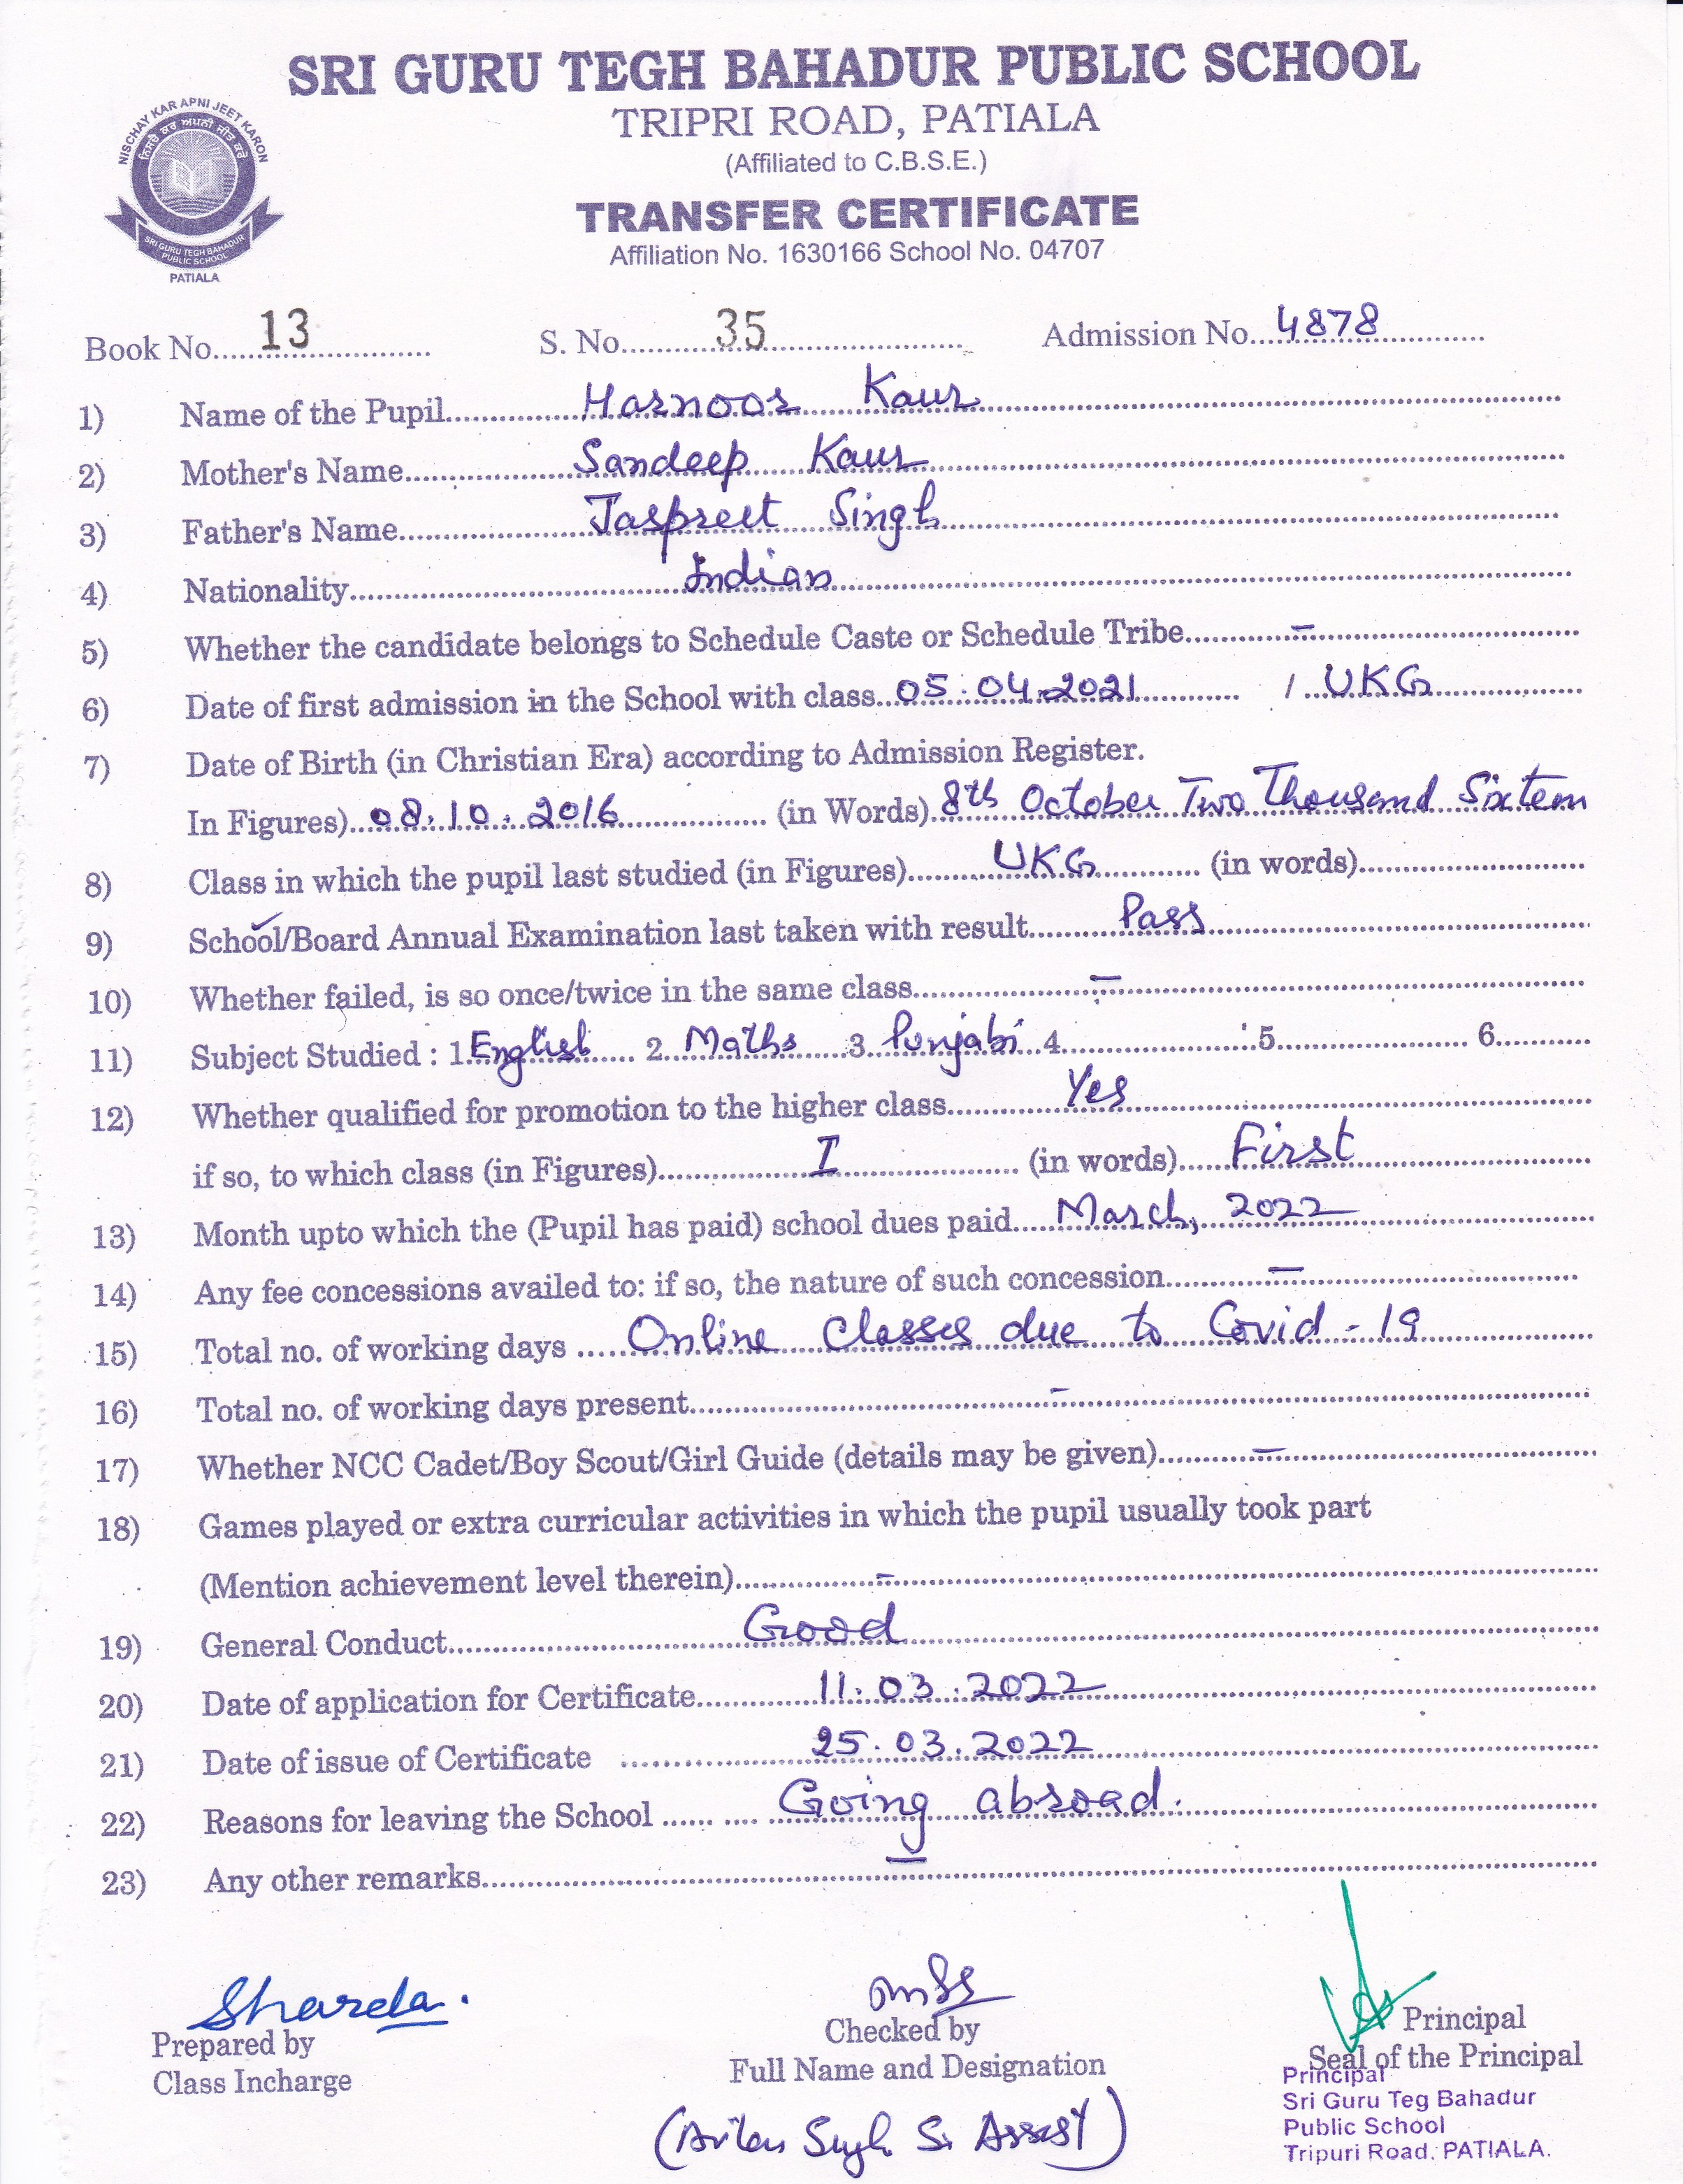 SRI GURU TEGH BAHADUR PUBLIC SCHOOL
TRIPRI ROAD, PATIALA
(Affiliated to C.B.S.E.)
TRANSFER CERTIFICATE
Affiliation No. 1630166 School No. 04707
NISCHAY KAR APNI JEET KARON
ਨਿਸਚੈ ਕਰ ਅਪਨੀ ਜੀਤ ਕਰੋਂ
SRI GURU TEGH BAHADUR
PUBLIC SCHOOL
PATIALA
Book No. 13 S. No. 35 Admission No. 4878
1) Name of the Pupil Harnoor Kaur
2) Mother's Name Sandeep Kaur
3) Father's Name Jaspreet Singh
4) Nationality Indian
5) Whether the candidate belongs to Schedule Caste or Schedule Tribe –
6) Date of first admission in the School with class 05.04.2021 / UKG
7) Date of Birth (in Christian Era) according to Admission Register.
In Figures) 08.10.2016 (in Words) 8th October Two Thousand Sixteen
8) Class in which the pupil last studied (in Figures) UKG (in words)
9) School/Board Annual Examination last taken with result Pass
10) Whether failed, is so once/twice in the same class –
11) Subject Studied : 1 English 2 Maths 3 Punjabi 4 5 6
12) Whether qualified for promotion to the higher class Yes
if so, to which class (in Figures) I (in words) First
13) Month upto which the (Pupil has paid) school dues paid March, 2022
14) Any fee concessions availed to: if so, the nature of such concession –
15) Total no. of working days Online Classes due to Covid-19
16) Total no. of working days present –
17) Whether NCC Cadet/Boy Scout/Girl Guide (details may be given) –
18) Games played or extra curricular activities in which the pupil usually took part
(Mention achievement level therein) –
19) General Conduct Good
20) Date of application for Certificate 11.03.2022
21) Date of issue of Certificate 25.03.2022
22) Reasons for leaving the School Going abroad.
23) Any other remarks –
Sharda.
Prepared by
Class Incharge
Checked by
Full Name and Designation
Singh
Principal
Seal of the Principal
Principal
Sri Guru Teg Bahadur
Public School
Tripuri Road, PATIALA.